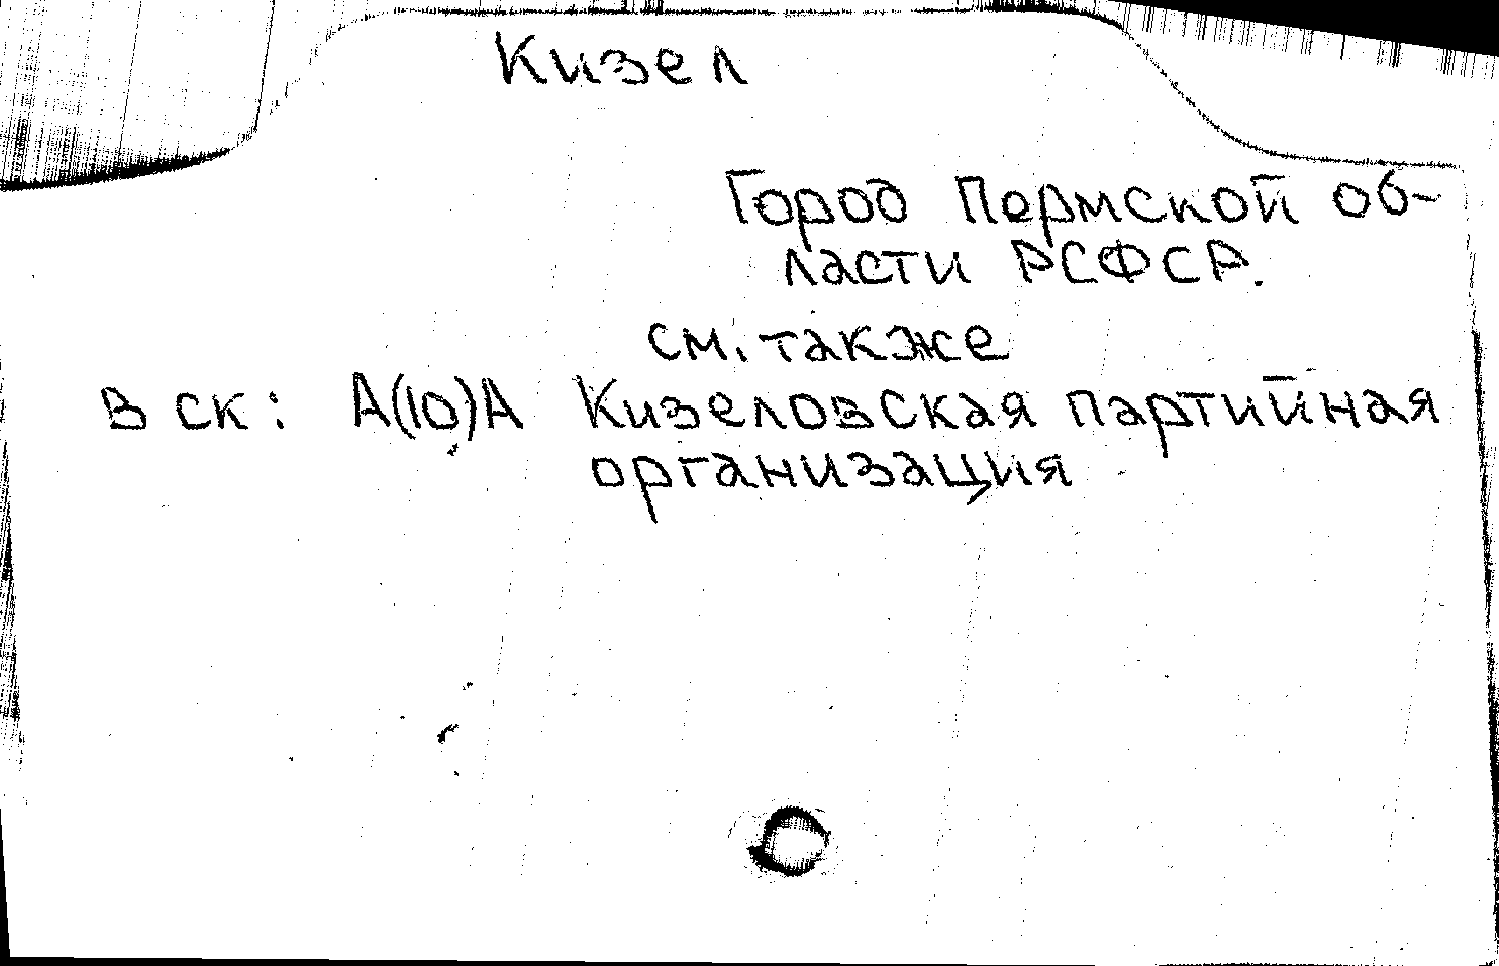 Кизел
Город Пермской об-
ласти РСФСР.
см. также
В СК: А(10)А Кизеловская партийная
организация